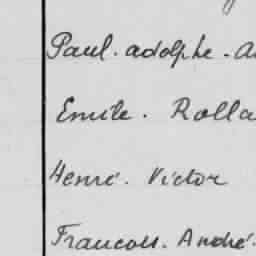 Paul. adolphe. A
Emile. Rolla
Henri. Victor
Francois. André.